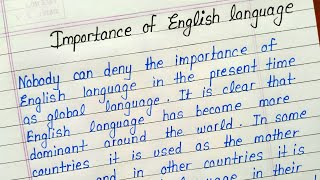 Importance of English language
Nobody can deny the importance of
English language in the present time
as global language. It is clear that
English language has become more
dominant around the world. In some
countries it is used as the mother
and in other countries it is
language in their